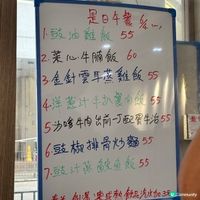 是日午餐
1. 豉油雞飯 55
2. 菜心牛腩飯 60
3. 金針雲耳蒸雞飯 55
4. 洋蔥汁牛扒餐肉飯 55
5. 沙嗲牛肉公前一丁配餐牛治 55
6. 豉椒排骨炒麵 55
7. 豉汁蒸 魚飯 55